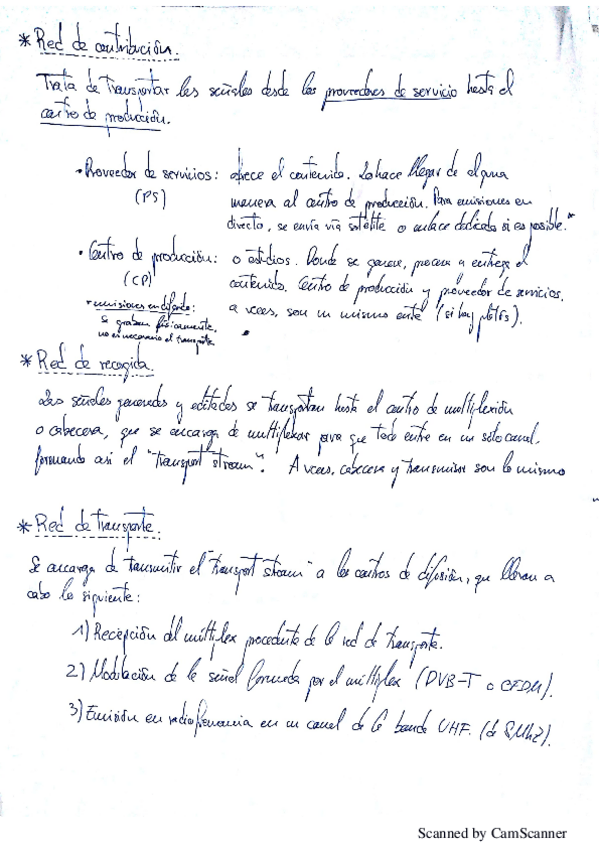 * Red de contribución.
Trata de transportar las señales desde los proveedores de servicio hasta el
centro de producción.
· Proveedor de servicios: ofrece el contenido. Lo hace llegar de alguna
(PS) manera al centro de producción. Para emisiones en
directo, se envía vía satélite o enlace dedicado si es posible.*
· Centro de producción: o estudios. Donde se genera, procesa y entrega el
(CP) contenido. Centro de producción y proveedor de servicios,
* emisiones en diferido: a veces, son un mismo ente (si hay platós).
se graban físicamente,
no es necesario el transporte
* Red de recogida.
Las señales generadas y editadas se transportan hasta el centro de multiplexión
o cabecera, que se encarga de multiplexar para que todo entre en un sólo canal,
formando así el "transport stream". A veces, cabecera y transmisor son lo mismo
* Red de transporte.
Se encarga de transmitir el "transport stream" a los centros de difusión, que llevan a
cabo lo siguiente:
1) Recepción del múltiplex procedente de la red de transporte.
2) Modulación de la señal formada por el múltiplex (DVB-T o OFDM).
3) Emisión en radiofrecuencia en un canal de la banda UHF. (de 8 MHz).
Scanned by CamScanner